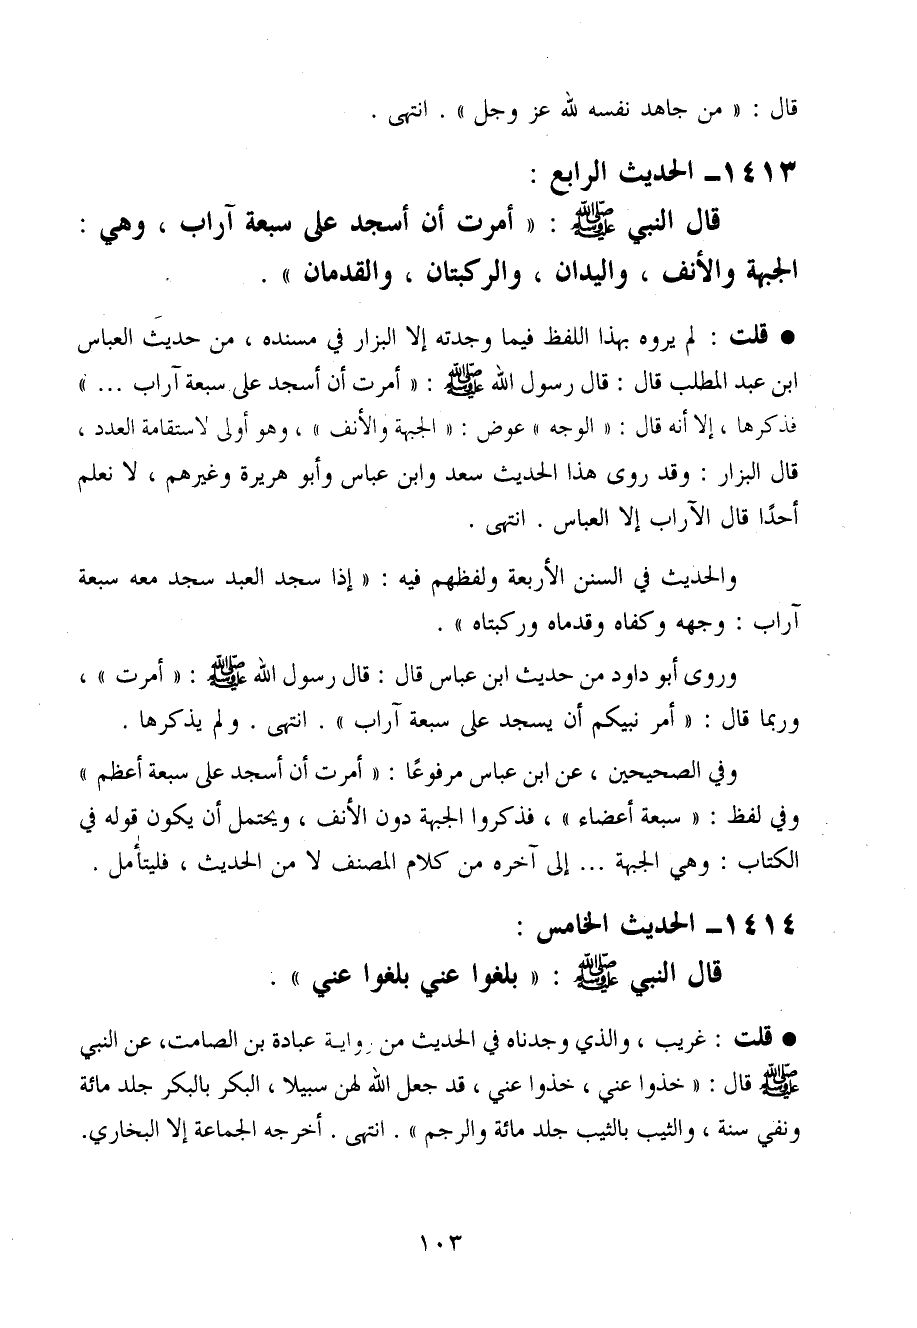 قال : « من جاهد نفسه لله عز وجل » . انتهى .
١٤١٣ـ الحديث الرابع :
قال النبي ﷺ : « أمرت أن أسجد على سبعة آراب ، وهي :
الجبهة والأنف ، واليدان ، والركبتان ، والقدمان » .
● قلت : لم يروه بهذا اللفظ فيما وجدته إلا البزار في مسنده ، من حديث العباس
ابن عبد المطلب قال : قال رسول الله ﷺ : « أمرت أن أسجد على سبعة آراب ... »
فذكرها ، إلا أنه قال : « الوجه » عوض : « الجبهة والأنف » ، وهو أولى لاستقامة العدد ،
قال البزار : وقد روى هذا الحديث سعد وابن عباس وأبو هريرة وغيرهم ، لا نعلم
أحدًا قال الآراب إلا العباس . انتهى .
والحديث في السنن الأربعة ولفظهم فيه : « إذا سجد العبد سجد معه سبعة
آراب : وجهه وكفاه وقدماه وركبتاه » .
وروى أبو داود من حديث ابن عباس قال : قال رسول الله ﷺ : « أمرت » ،
وربما قال : « أمر نبيكم أن يسجد على سبعة آراب » . انتهى . ولم يذكرها .
وفي الصحيحين ، عن ابن عباس مرفوعًا : « أمرت أن أسجد على سبعة أعظم »
وفي لفظ : « سبعة أعضاء » ، فذكروا الجبهة دون الأنف ، ويحتمل أن يكون قوله في
الكتاب : وهي الجبهة ... إلى آخره من كلام المصنف لا من الحديث ، فليتأمل .
١٤١٤ـ الحديث الخامس :
قال النبي ﷺ : « بلغوا عني بلغوا عني » .
● قلت : غريب ، والذي وجدناه في الحديث من رواية عبادة بن الصامت، عن النبي
ﷺ قال : « خذوا عني ، خذوا عني ، قد جعل الله لهن سبيلا ، البكر بالبكر جلد مائة
ونفي سنة ، والثيب بالثيب جلد مائة والرجم » . انتهى . أخرجه الجماعة إلا البخاري.
١٠٣